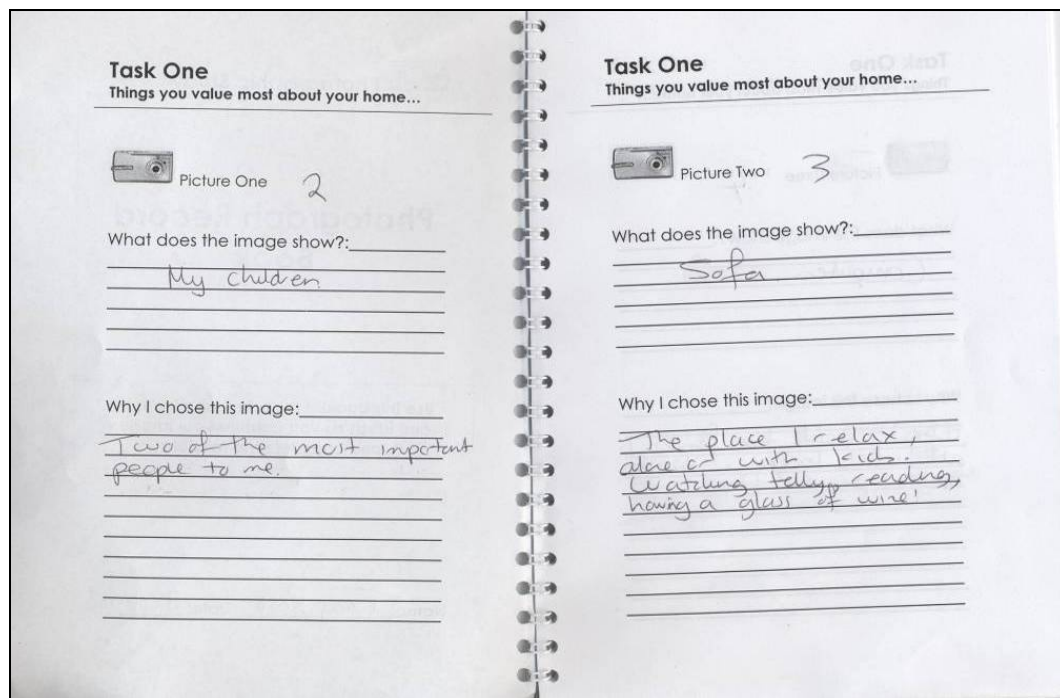 Task One
Things you value most about your home...
Picture One 2
What does the image show?:
My children
Why I chose this image:
Two of the most important
people to me.
Task One
Things you value most about your home...
Picture Two 3
What does the image show?:
Sofa
Why I chose this image:
The place I relax,
alone or with kids.
Watching telly, reading,
having a glass of wine!